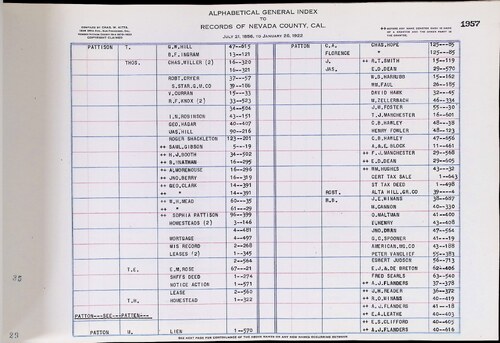 ALPHABETICAL GENERAL INDEX
TO
RECORDS OF NEVADA COUNTY, CAL.
JULY 21, 1856, TO JANUARY 26, 1922
1957
COPYRIGHT CLAIMED
PATTISON T. G.W. HILL 47--615
B.F. INGRAM 13--121
THOS. CHAS. MILLER (2) 16--320
ROBT. DRYER 37---57
S. STAR.G.M.CO 39--186
V. CURRAN 15---33
R.F. KNOX (2) 33--523
34--504
I.N. ROBINSON 43--151
GEO. HAGAR 40--407
JAS. HILL 90--216
ROGER SHACKLETON 123--201
++ SAML. GIBSON 5---19
++ H.J. BOOTH 34--502
++ B. INATHAN 16--295
++ ALMOREHOUSE 16--296
++ JNO. BERRY 16--316
++ GEO. CLARK 14--391
++ " 14--391
++ B.H. MEAD 60---35
++ " 61---29
++ SOPHIA PATTISON 96--399
HOMESTEADS (2) 3--146
4--681
MORTGAGE 4--497
MIS RECORD 2--268
LEASES (2) 1--345
2--564
T.E. E.M. ROSE 67---21
SHFFS DEED 1--274
NOTICE ACTION 1--571
LEASE 2--560
T.H. HOMESTEAD 1--322
PATTON---SEE---PATTEN---
PATTON W. LIEN 1--570
PATTON C.A. CHAS. HOPE 125---85
FLORENCE " 125---85
J. ++ R.T. SMITH 15--119
JAS. E.D. DEAN 29--570
W.S. 15--162
WM. FAUL 26--155
DAVID HAWK 32---45
M. ZELLERBACH 46--334
J.H. FOSTER 55---30
T.J. MANCHESTER 16--601
C.B. HAWLEY 48---38
HENRY FOWLER 48--123
C.B. HAWLEY 47--656
A.& E. BLOCK 11--461
++ F.J. MANCHESTER 29--568
++ E.D. DEAN 29--605
++ RM. HUGHES 43---32
CERT TAX SALE 1--643
ST TAX DEED 1--498
ROBT. ALTA HILL.GR.CO 39----4
R.B. J.E. WINANS 38--687
N. CANNON 40--330
G. MALTMAN 41--400
E. HENRY 43--408
JNO. DRAN 47--564
G.C. SPOONER 41---19
AMERICAN.MG.CO 43--188
PETER VANCLIEF 55--383
EGBERT JUDSON 56--713
E.J.& DE BRETON 62--486
FRED SEARLS 63--540
++ A.J. FLANDERS 37--378
++ J.M. READER 36--372
++ R.O. WINANS 40--419
++ A.J. FLANDERS 41---18
++ E.A. LEATHE 40--403
++ E.A. CLIFFORD 40--405
++ A.J. FLANDERS 41--616